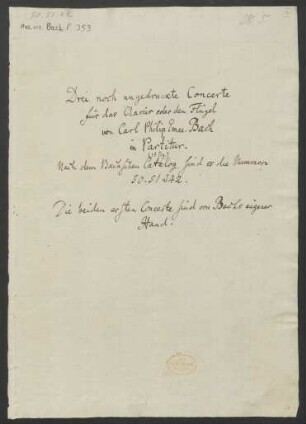 50. 51. 42.
Mus. ms. Bach P 353
Drei noch ungedruckte Concerte
für das Clavier oder den Flügel
von Carl Philip Eman. Bach
in Partitur.
Nach dem Bachschen Catalog sind es die Nummern
50. 51 & 42.
Die beiden ersten Concerte sind von Bachs eigener
Hand.